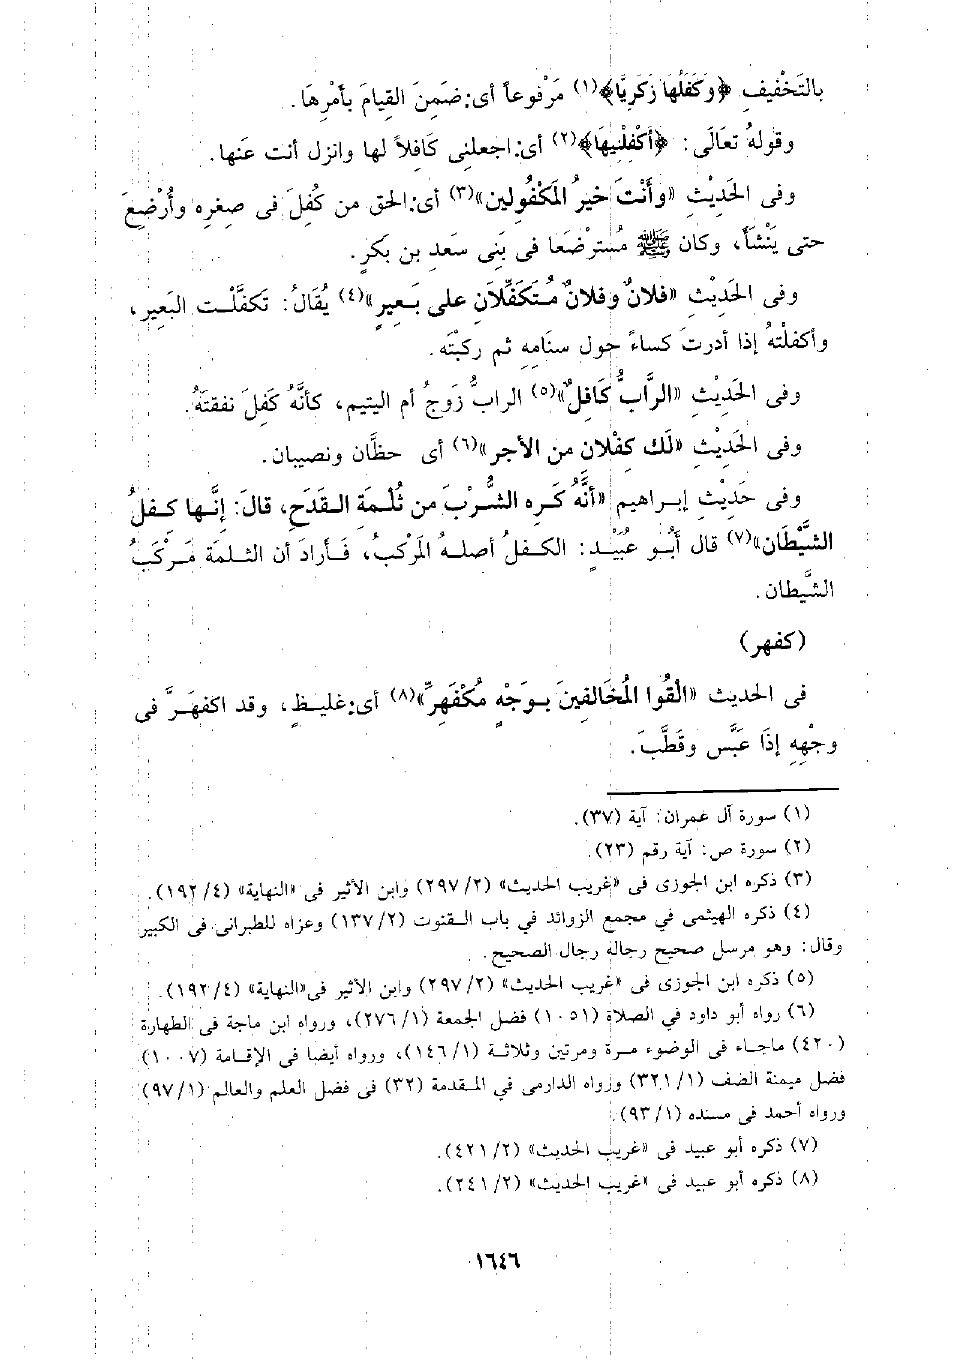 بالتَخْفيفِ ﴿وَكَفَلَهَا زَكَرِيَّا﴾(١) مَرْفوعاً أى: ضَمِنَ القِيامَ بأمْرِهَا.
وقولهُ تعَالَى: ﴿أَكْفِلْنِيهَا﴾(٢) أى: اجعلنِى كَافِلاً لها وانزل أنت عَنها.
وفى الحَدِيْثِ «وأَنْتَ خيرُ المَكْفُولين»(٣) أى: الحق من كُفِلَ فى صِغرِه وأُرْضِعَ
حتى يَنْشَأَ، وكان ﷺ مُسترْضَعا فى بَنِى سَعدِ بن بَكرٍ.
وفى الحَدِيْثِ «فلانٌ وفلانٌ مُتكَفِّلاَنِ على بَعيرٍ»(٤) يُقَالُ: تكفَّلْت البَعير،
وأكفلْتهُ إذا أدرتَ كساءً حول سنَامِهِ ثم ركبْتَه.
وفى الحَدِيْثِ «الرَّابُّ كَافِلٌ»(٥) الرابُّ زَوجُ أم اليتيم، كأنَّهُ كَفِلَ نفقتَهُ.
وفى الحَدِيْثِ «لَك كفْلان من الأجر»(٦) أى حظَّان ونصيبان.
وفى حَدِيْثِ إبراهيم «أنَّهُ كَره الشُّرْبَ من ثُلْمَةِ القَدَحِ، قالَ: إنَّها كِفلُ
الشَّيْطَان»(٧) قال أبُو عُبَيْدٍ: الكفلُ أصلهُ المَركبُ، فَأرادَ أن الثلمَة مَركَبُ
الشَّيطان.
(كفهر)
فى الحديث «القُوا المُخَالفِينَ بوَجْهٍ مُكْفَهِرٍّ»(٨) أى: غليظٍ، وقد اكفهَرَّ فى
وجْهِهِ إذَا عَبَّس وقَطَّبَ.
(١) سورة آل عمران: آية (٣٧).
(٢) سورة ص: آية رقم (٢٣).
(٣) ذكره ابن الجوزى فى «غريب الحديث» (٢/ ٢٩٧) وابن الأثير فى «النهاية» (٤/ ١٩٢).
(٤) ذكره الهيثمى في مجمع الزوائد في باب القنوت (٢/ ١٣٧) وعزاه للطبرانى فى الكبير
وقال: وهو مرسل صحيح رجاله رجال الصحيح.
(٥) ذكره ابن الجوزى فى «غريب الحديث» (٢/ ٢٩٧) وابن الأثير فى «النهاية» (٤/ ١٩٢).
(٦) رواه أبو داود في الصلاة (١٠٥١) فضل الجمعة (١/ ٢٧٦)، ورواه ابن ماجة فى الطهارة
(٤٢٠) ماجاء فى الوضوء مرة ومرتين وثلاثة (١/ ١٤٦)، ورواه أيضا فى الإقامة (١٠٠٧)
فضل ميمنة الصف (١/ ٣٢١) ورواه الدارمى في المقدمة (٣٢) فى فضل العلم والعالم (١/ ٩٧)
ورواه أحمد فى مسنده (١/ ٩٣).
(٧) ذكره أبو عبيد فى «غريب الحديث» (٢/ ٤٢١).
(٨) ذكره أبو عبيد فى «غريب الحديث» (٢/ ٢٤١).
١٦٤٦